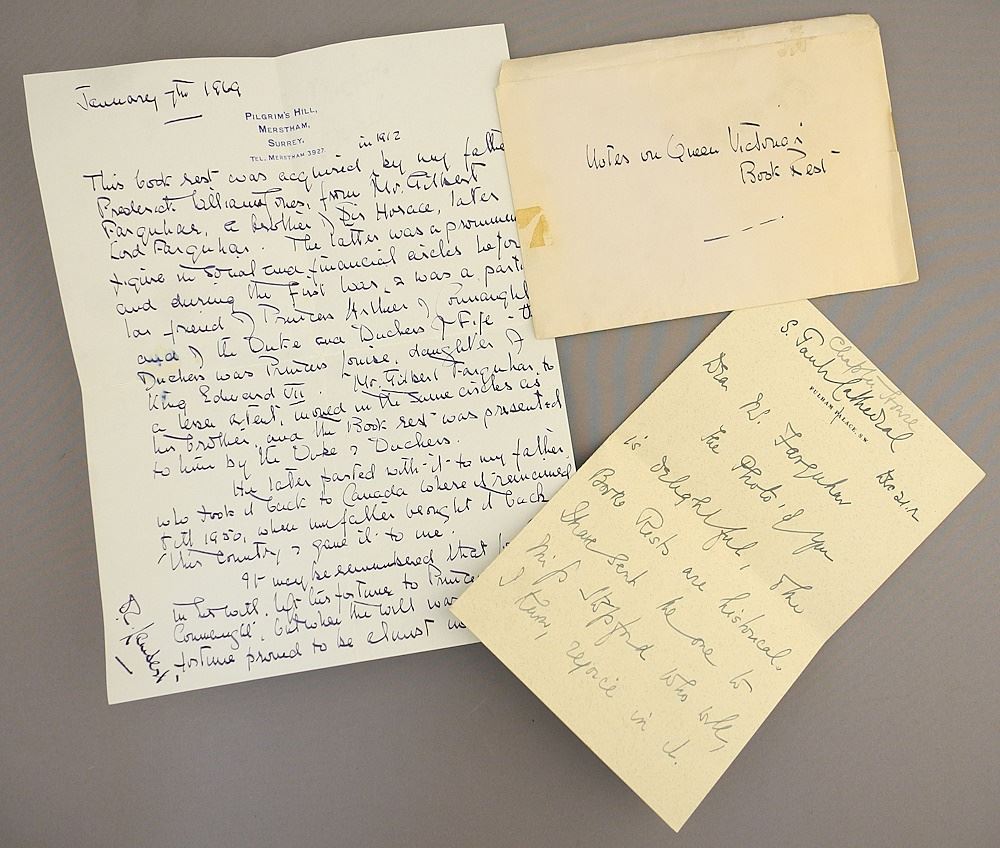 January 7th 1969
PILGRIM'S HILL,
MERSTHAM,
SURREY.
TEL. MERSTHAM 3927.
in 1912
This book rest was acquired by my father
Frederick Williams Jones, from Mr. Gilbert
Farquhar, a brother of Sir Horace, later
Lord Farquhar. The latter was a prominen
figure in social and financial circles befor
and during the First War, & was a parti
lar friend of Princess Arthur of Connaught
and of the Duke and Duchess of Fife - th
Duchess was Princess Louise, daughter of
King Edward VII. Mr. Gilbert Farquhar, to
a lesser extent, moved in the same circles as
his brother, and the Book rest was presented
to him by the Duke & Duchess.
He later parted with it to my father
who took it back to Canada where it remained
till 1950, when my father brought it back
this country & gave it to me.
It may be remembered that
in his will, left his fortune to Princess
Connaught, but when the will was
fortune proved to be almost
Notes on Queen Victoria's
Book Rest
Chapter House
S. Pauls Cathedral
FULHAM PALACE, S.W.
Dec 21.12
Dear Mr. Farquhar
The Photo of you
is delightful, the
Book Rests are historical.
I have sent the one to
Miss Stopford who will,
I know, rejoice in it.